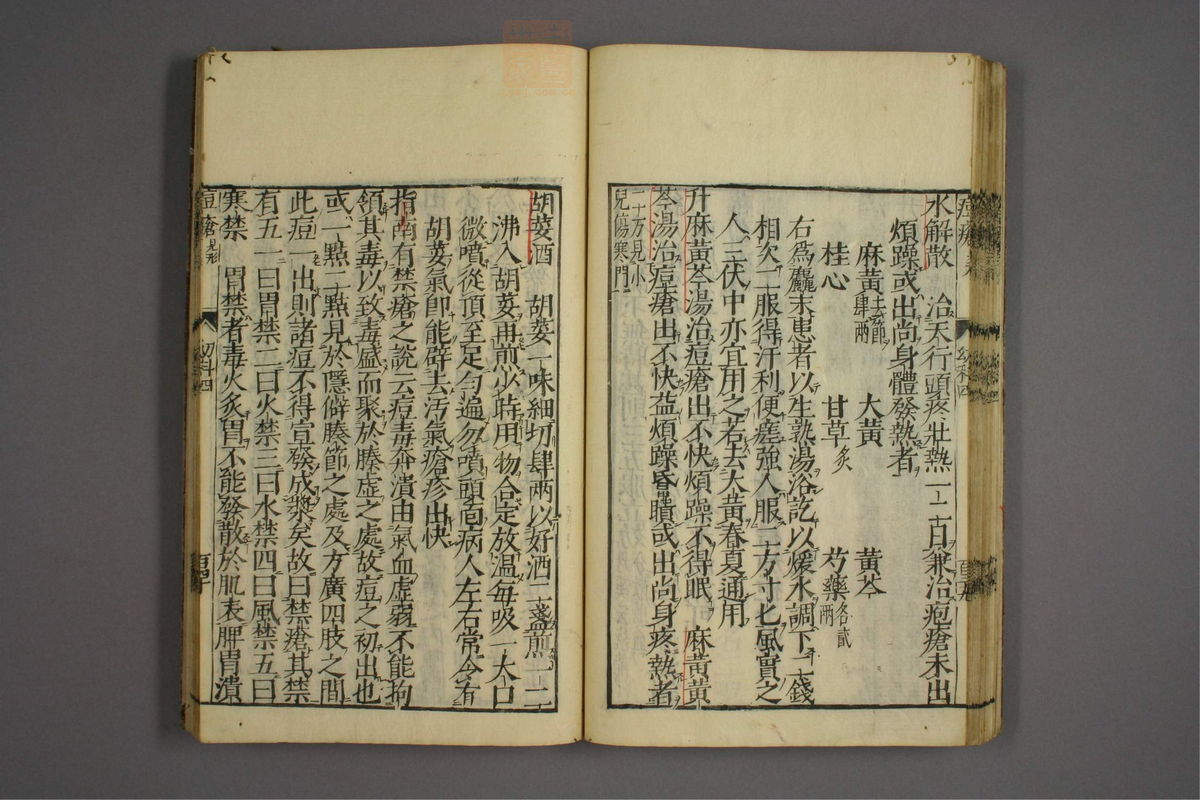 水解散　治天行頭疼壯熱一二日兼治疱瘡未出
煩躁或出尚身體發熱者
麻黃去節肆兩　大黃　黃芩
桂心　甘草炙　芍藥各貳兩
右爲麤末患者以生熟湯浴訖以煖水調下二錢
相次二服得汗利便瘥強人服二方寸匕風實之
人三伏中亦宜用之若去大黃春夏通用
升麻黃芩湯治痘瘡出不快煩躁不得眠　麻黃黃
芩湯治痘瘡出不快益煩躁昏瞶或出尚身疼熱者
二十方見小
兒傷寒門
胡荽酒　胡荽一味細切肆兩以好酒二盞煎一二
沸入胡荽再煎少時用物合定放溫每吸一大口
微噴從頂至足勻遍勿噴頭面病人左右常令有
胡荽氣卽能辟去汚氣瘡疹出快
指南有禁瘡之說云痘毒奔潰由氣血虛弱不能拘
領其毒以致毒盛而聚於腠虛之處故痘之初出也
或一點二點見於隱僻腠節之處及方廣四肢之間
此痘一出則諸痘不得宣發成漿矣故曰禁瘡其禁
有五一曰胃禁二曰火禁三曰水禁四曰風禁五曰
寒禁　胃禁者毒火炙胃不能發散於肌表脾胃潰
痘瘡見形　幼科四